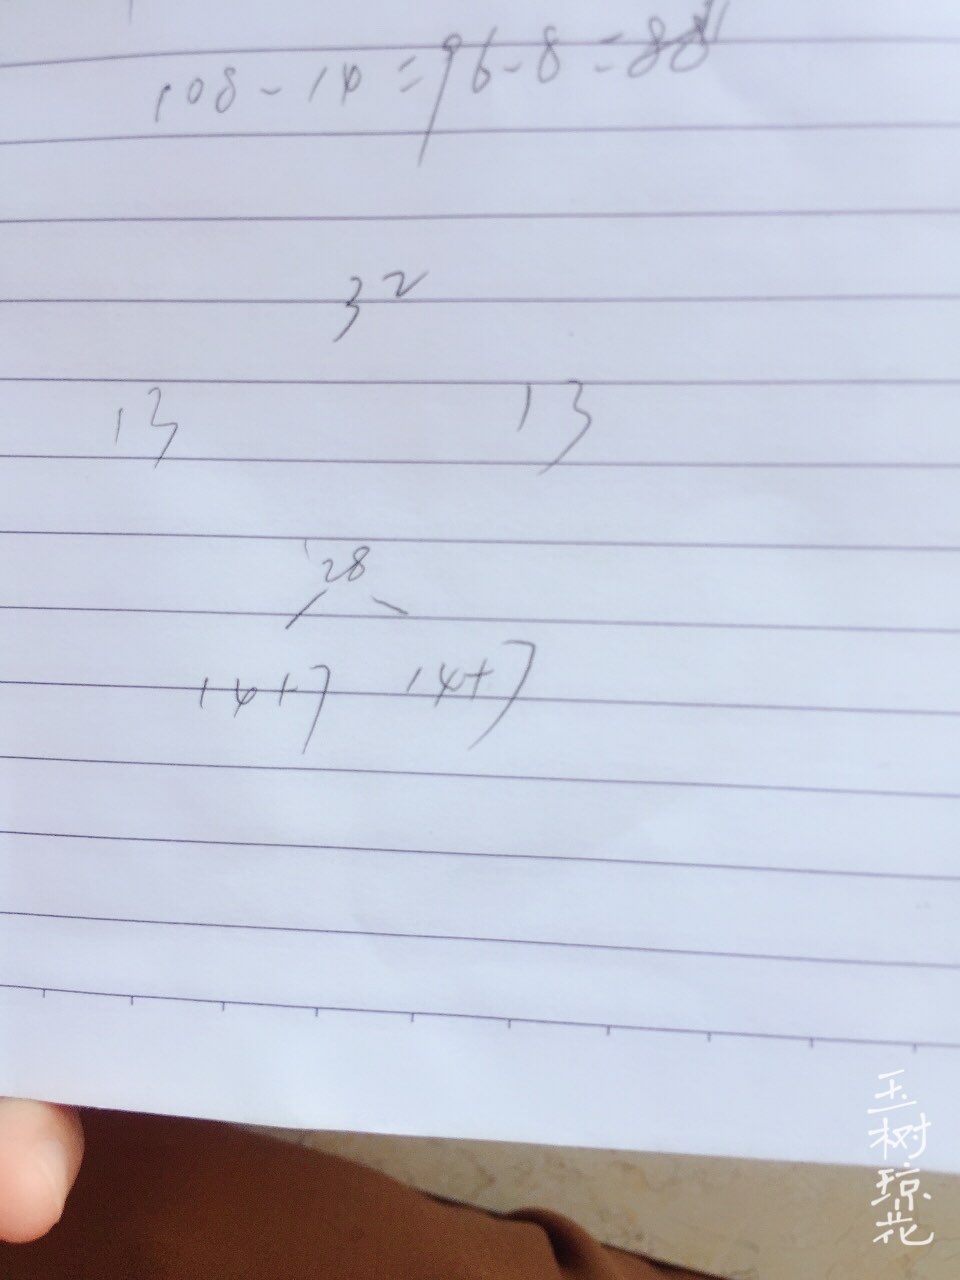 108-14=96-8=88
32
13 13
28
14+7 14+7
玉树琼花